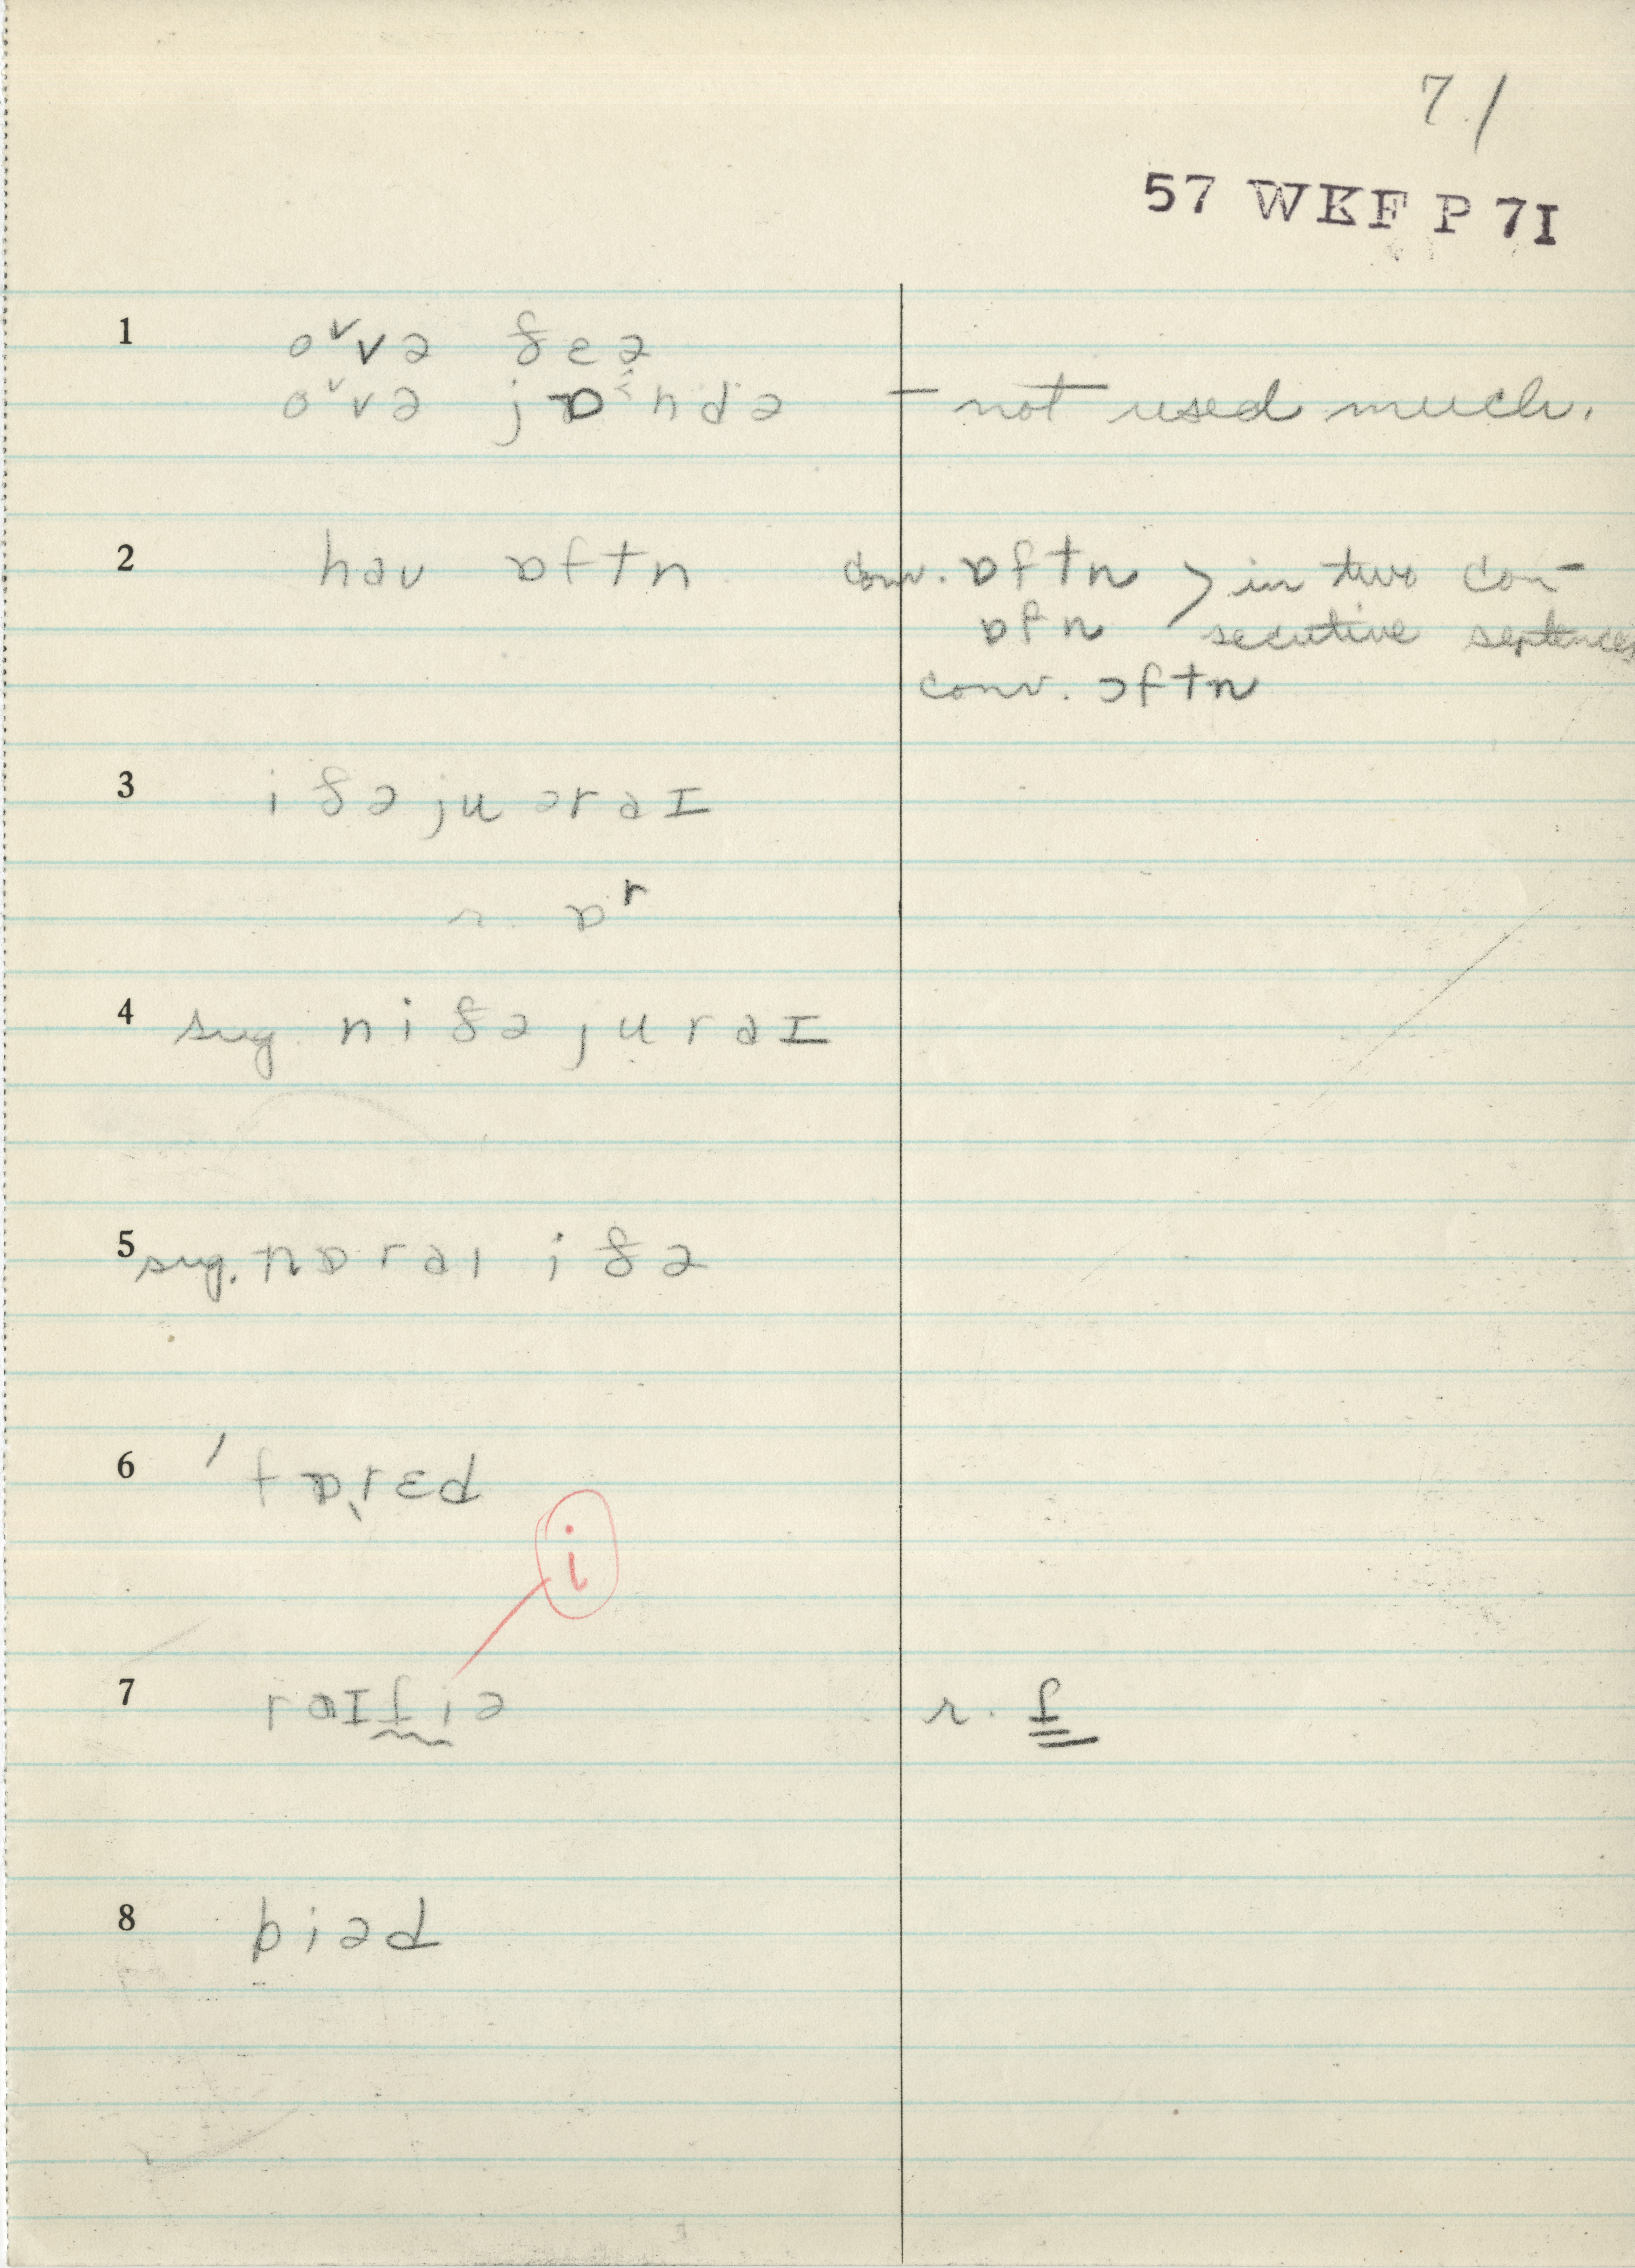 71
57 WKF P 7I
1 oᵛvə ðɛə
oᵛvə jɒ˂ndə – not used much.
2 hau ɒftn conv. ɒftn > in two con-
ɒfn secutive sentences
conv. ɔftn
3 iðə ju ər aɪ
r. ɒʳ
4 sug. niðə ju r aɪ
5 sug. nɒr aɪ iðə
6 ˈfɒˎrɛd
i
7 raɪfiə r. f
8 biəd